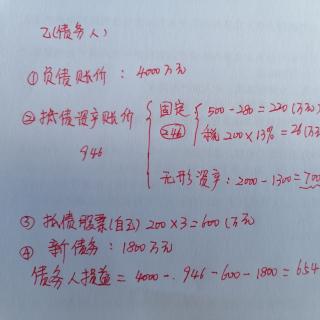 乙(债务人)
①负债账价：4000万元
②抵债资产账价 固定 500-280=220(万元)
946 246 税 200×13%=26(万元)
无形资产：2000-1300=700
③抵债股票(自五) 200×3=600(万元)
④ 新债务：1800万元
债务人损益=4000-.946-600-1800=654